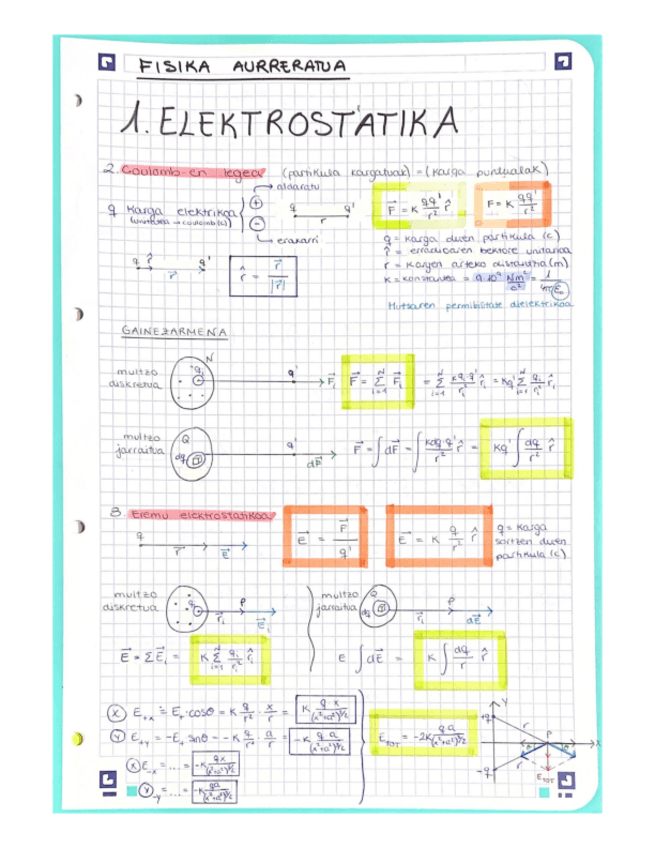 FISIKA AURRERATUA
1. ELEKTROSTATIKA
2. Coulomb en legea (partikula kargatuak) = (karga puntualak)
q karga elektrikoa
(unitatea → coulomb (c))
→ aldaratu
+
−
→ erakarri
q q'
r
F⃗ = K qq'/r² r̂
F = K qq'/r²
q r̂ q'
r⃗
r̂ = r⃗/|r⃗|
q = karga duen partikula (c)
r̂ = erradioaren bektore unitarioa
r = kargen arteko distantzia (m)
K = konstantea = 9·10⁹ Nm²/c² = 1/4πε₀
Hutsaren permibilitate dielektrikoa
GAINEZARMENA
multzo diskretua
N
qi
q'
F⃗i
F⃗ = Σ(i=1, N) F⃗i = Σ(i=1, N) Kqi·q'/ri² r̂i = Kq' Σ(i=1, N) qi/ri² r̂i
multzo jarraitua
Q
dq
q'
dF⃗
F⃗ = ∫ dF⃗ = ∫ Kdq·q'/r² r̂ = Kq' ∫ dq/r² r̂
3. Eremu elektrostatikoa
q
r⃗ E⃗
E⃗ = F⃗/q'
E⃗ = K q/r² r̂
q = karga
sortzen duen
partikula (c)
multzo diskretua
qi
P
r⃗i E⃗i
multzo jarraitua
Q
dq
P
r⃗i dE⃗
E⃗ = ΣE⃗i = K Σ(i=1, N) qi/ri² r̂i
E ∫ dE⃗ = K ∫ dq/r r̂
X E+x = E+ · cosθ = K q/r² · x/r = K qx/(x²+a²)^3/2
Y E+y = −E+ sinθ = −K q/r² · a/r = −K qa/(x²+a²)^3/2
X E−x = ... = −K qx/(x²+a²)^3/2
Y −y = ... = −K qa/(x²+a²)^3/2
E_TOT = −2K qa/(x²+a²)^3/2
Y
+q
r
P
X
−q
r
E_TOT